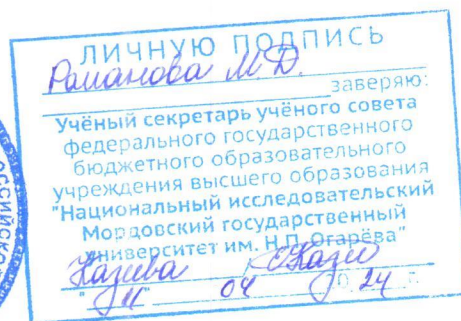 ЛИЧНУЮ ПОДПИСЬ
Романова М.Д.
заверяю:
Учёный секретарь учёного совета
федерального государственного
бюджетного образовательного
учреждения высшего образования
"Национальный исследовательский
Мордовский государственный
университет им. Н.П. Огарёва"
"11" 04 20 24 г.
РОССИЙСКО